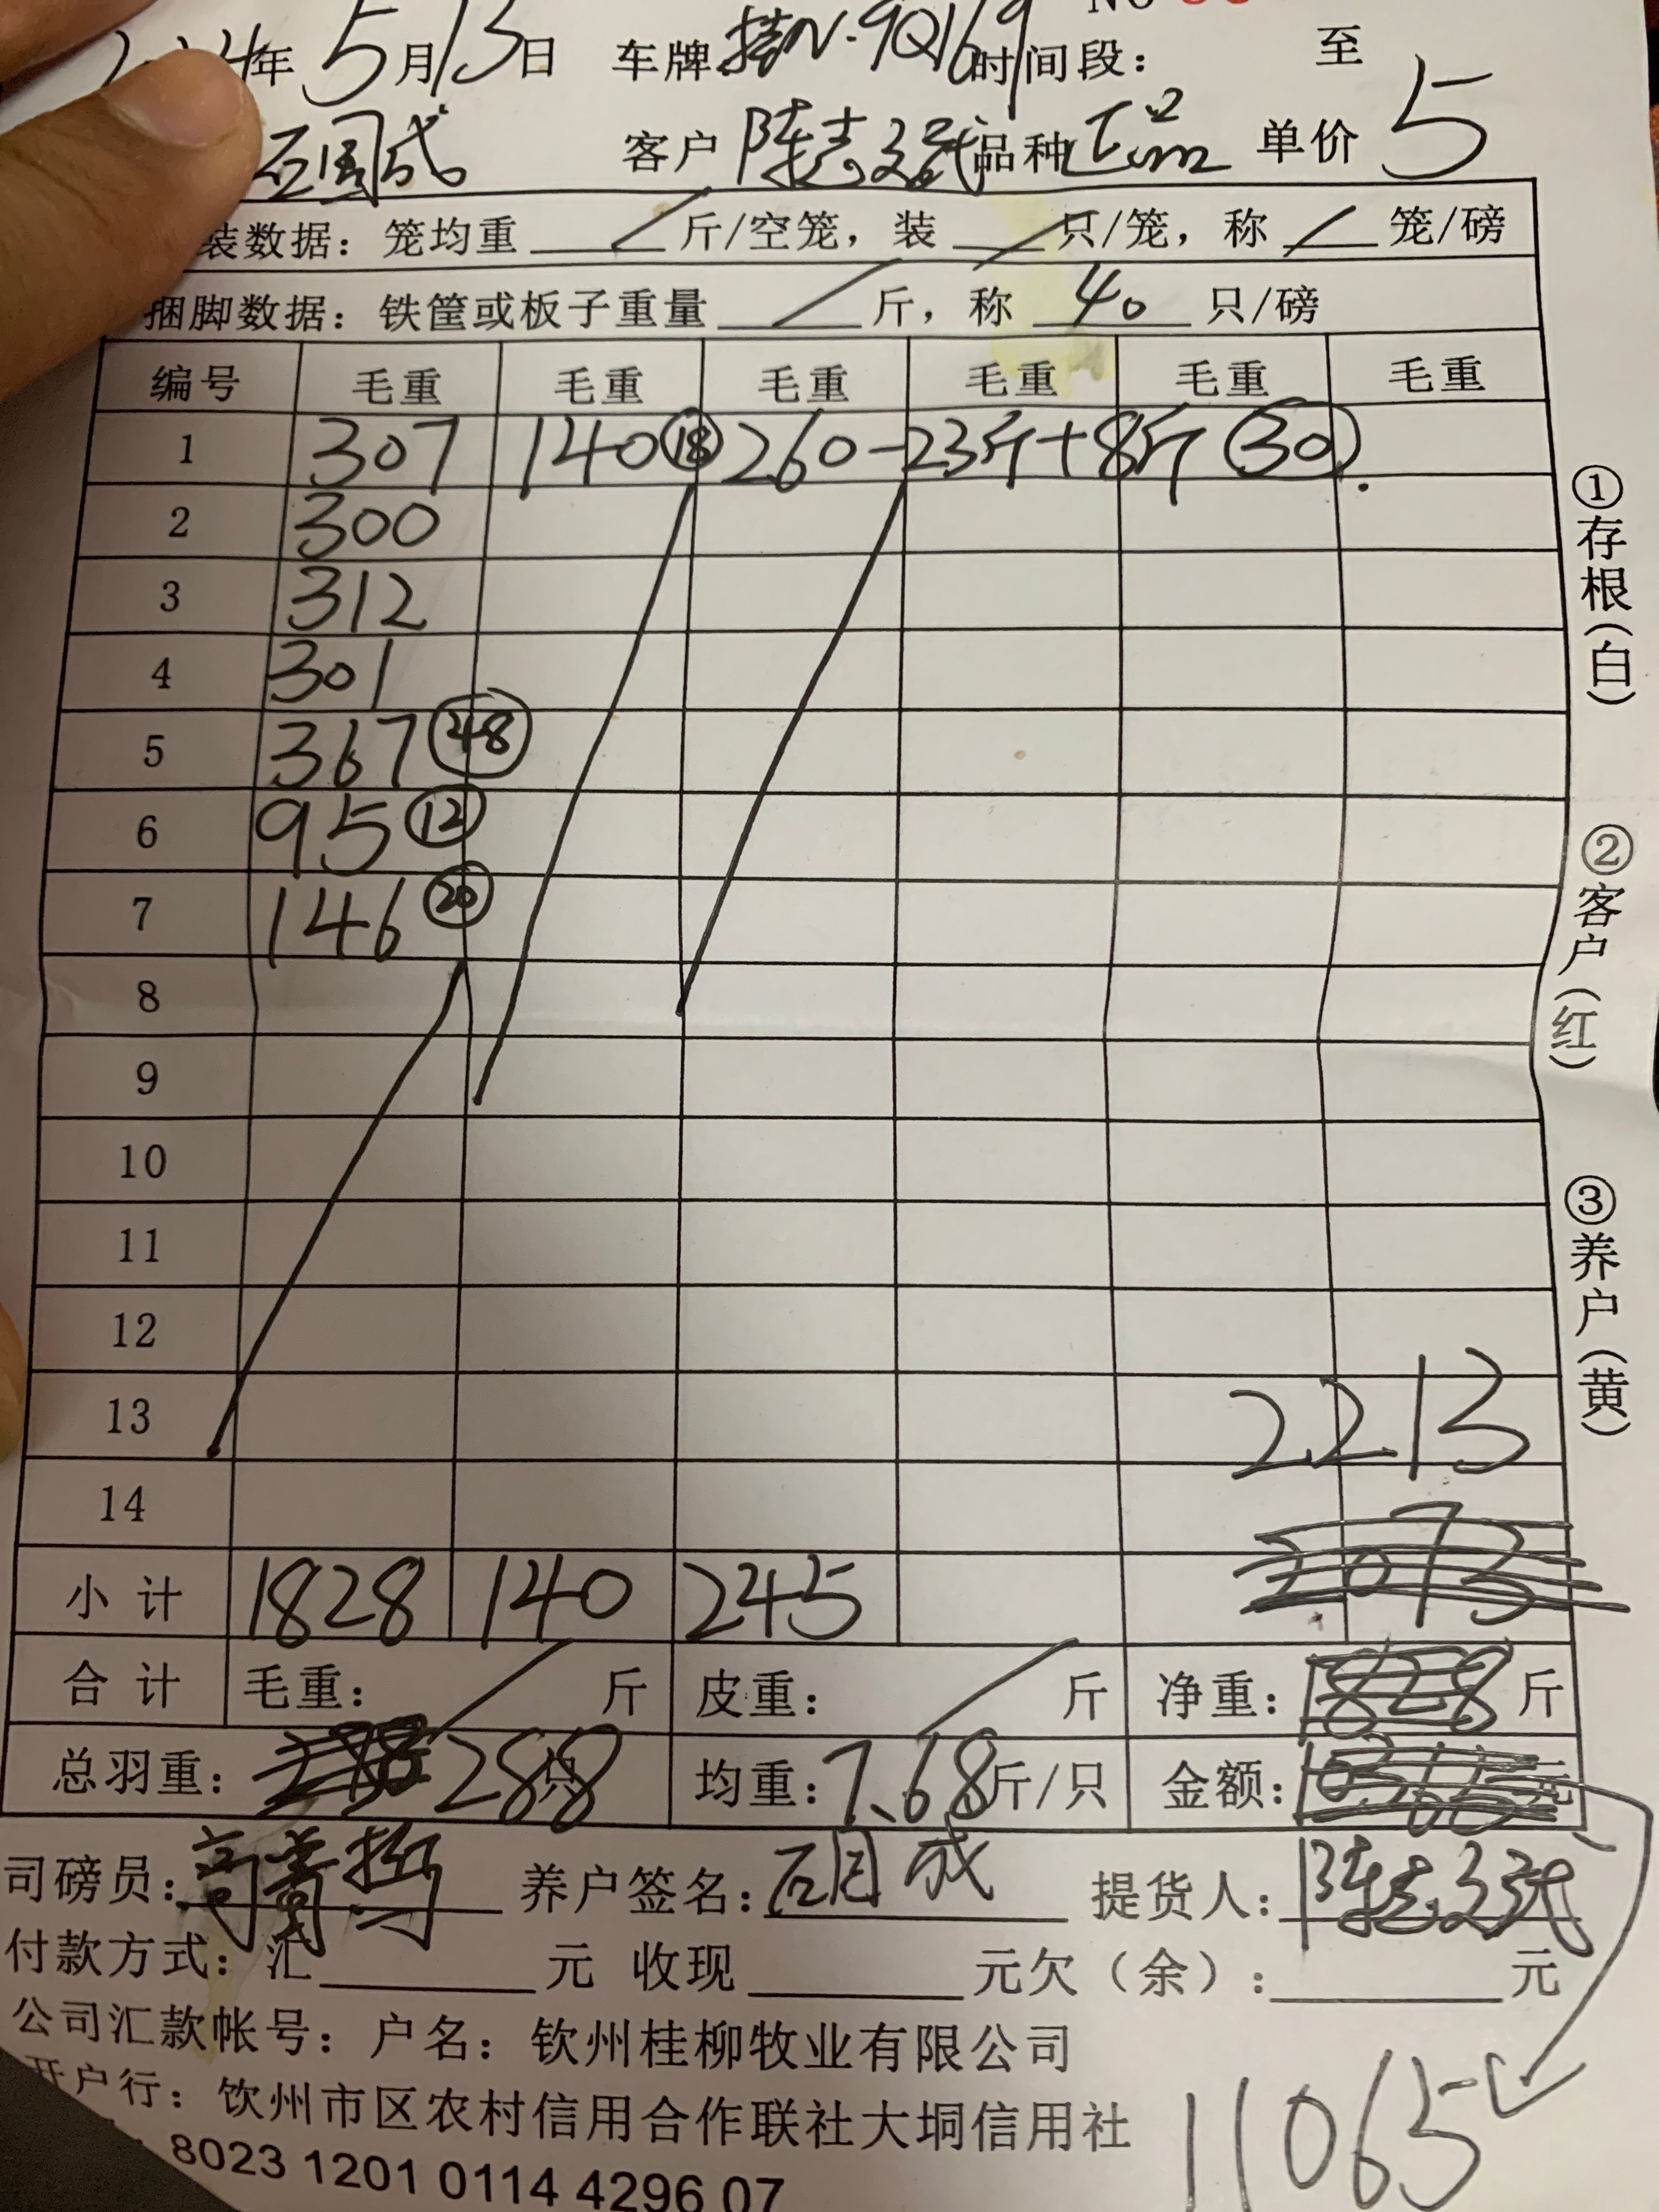 年 5月13日 车牌:桂N·9Q169 时间段: 至
石国成 客户 陈志斌 品种 正品 单价 5
装数据:笼均重 / 斤/空笼,装 / 只/笼,称 / 笼/磅
捆脚数据:铁筐或板子重量 / 斤,称 40 只/磅
编号 毛重 毛重 毛重 毛重 毛重 毛重
1 307 140 ⑱ 260-23斤+8斤 ㉚
2 300
3 312
4 301
5 367 ㊽
6 95 ⑫
7 146 ⑳
8
9
10
11
12
13 2213
14
小计 1828 140 245
合计 毛重: / 斤 皮重: / 斤 净重: 斤
总羽重: 288 只 均重:7.68 斤/只 金额: 元
司磅员: 养户签名: 提货人:陈志斌
付款方式:汇 元 收现 元欠(余): 元
公司汇款帐号:户名:钦州桂柳牧业有限公司
开户行:钦州市区农村信用合作联社大垌信用社 11065
8023 1201 0114 4296 07
①存根(白)
②客户(红)
③养户(黄)